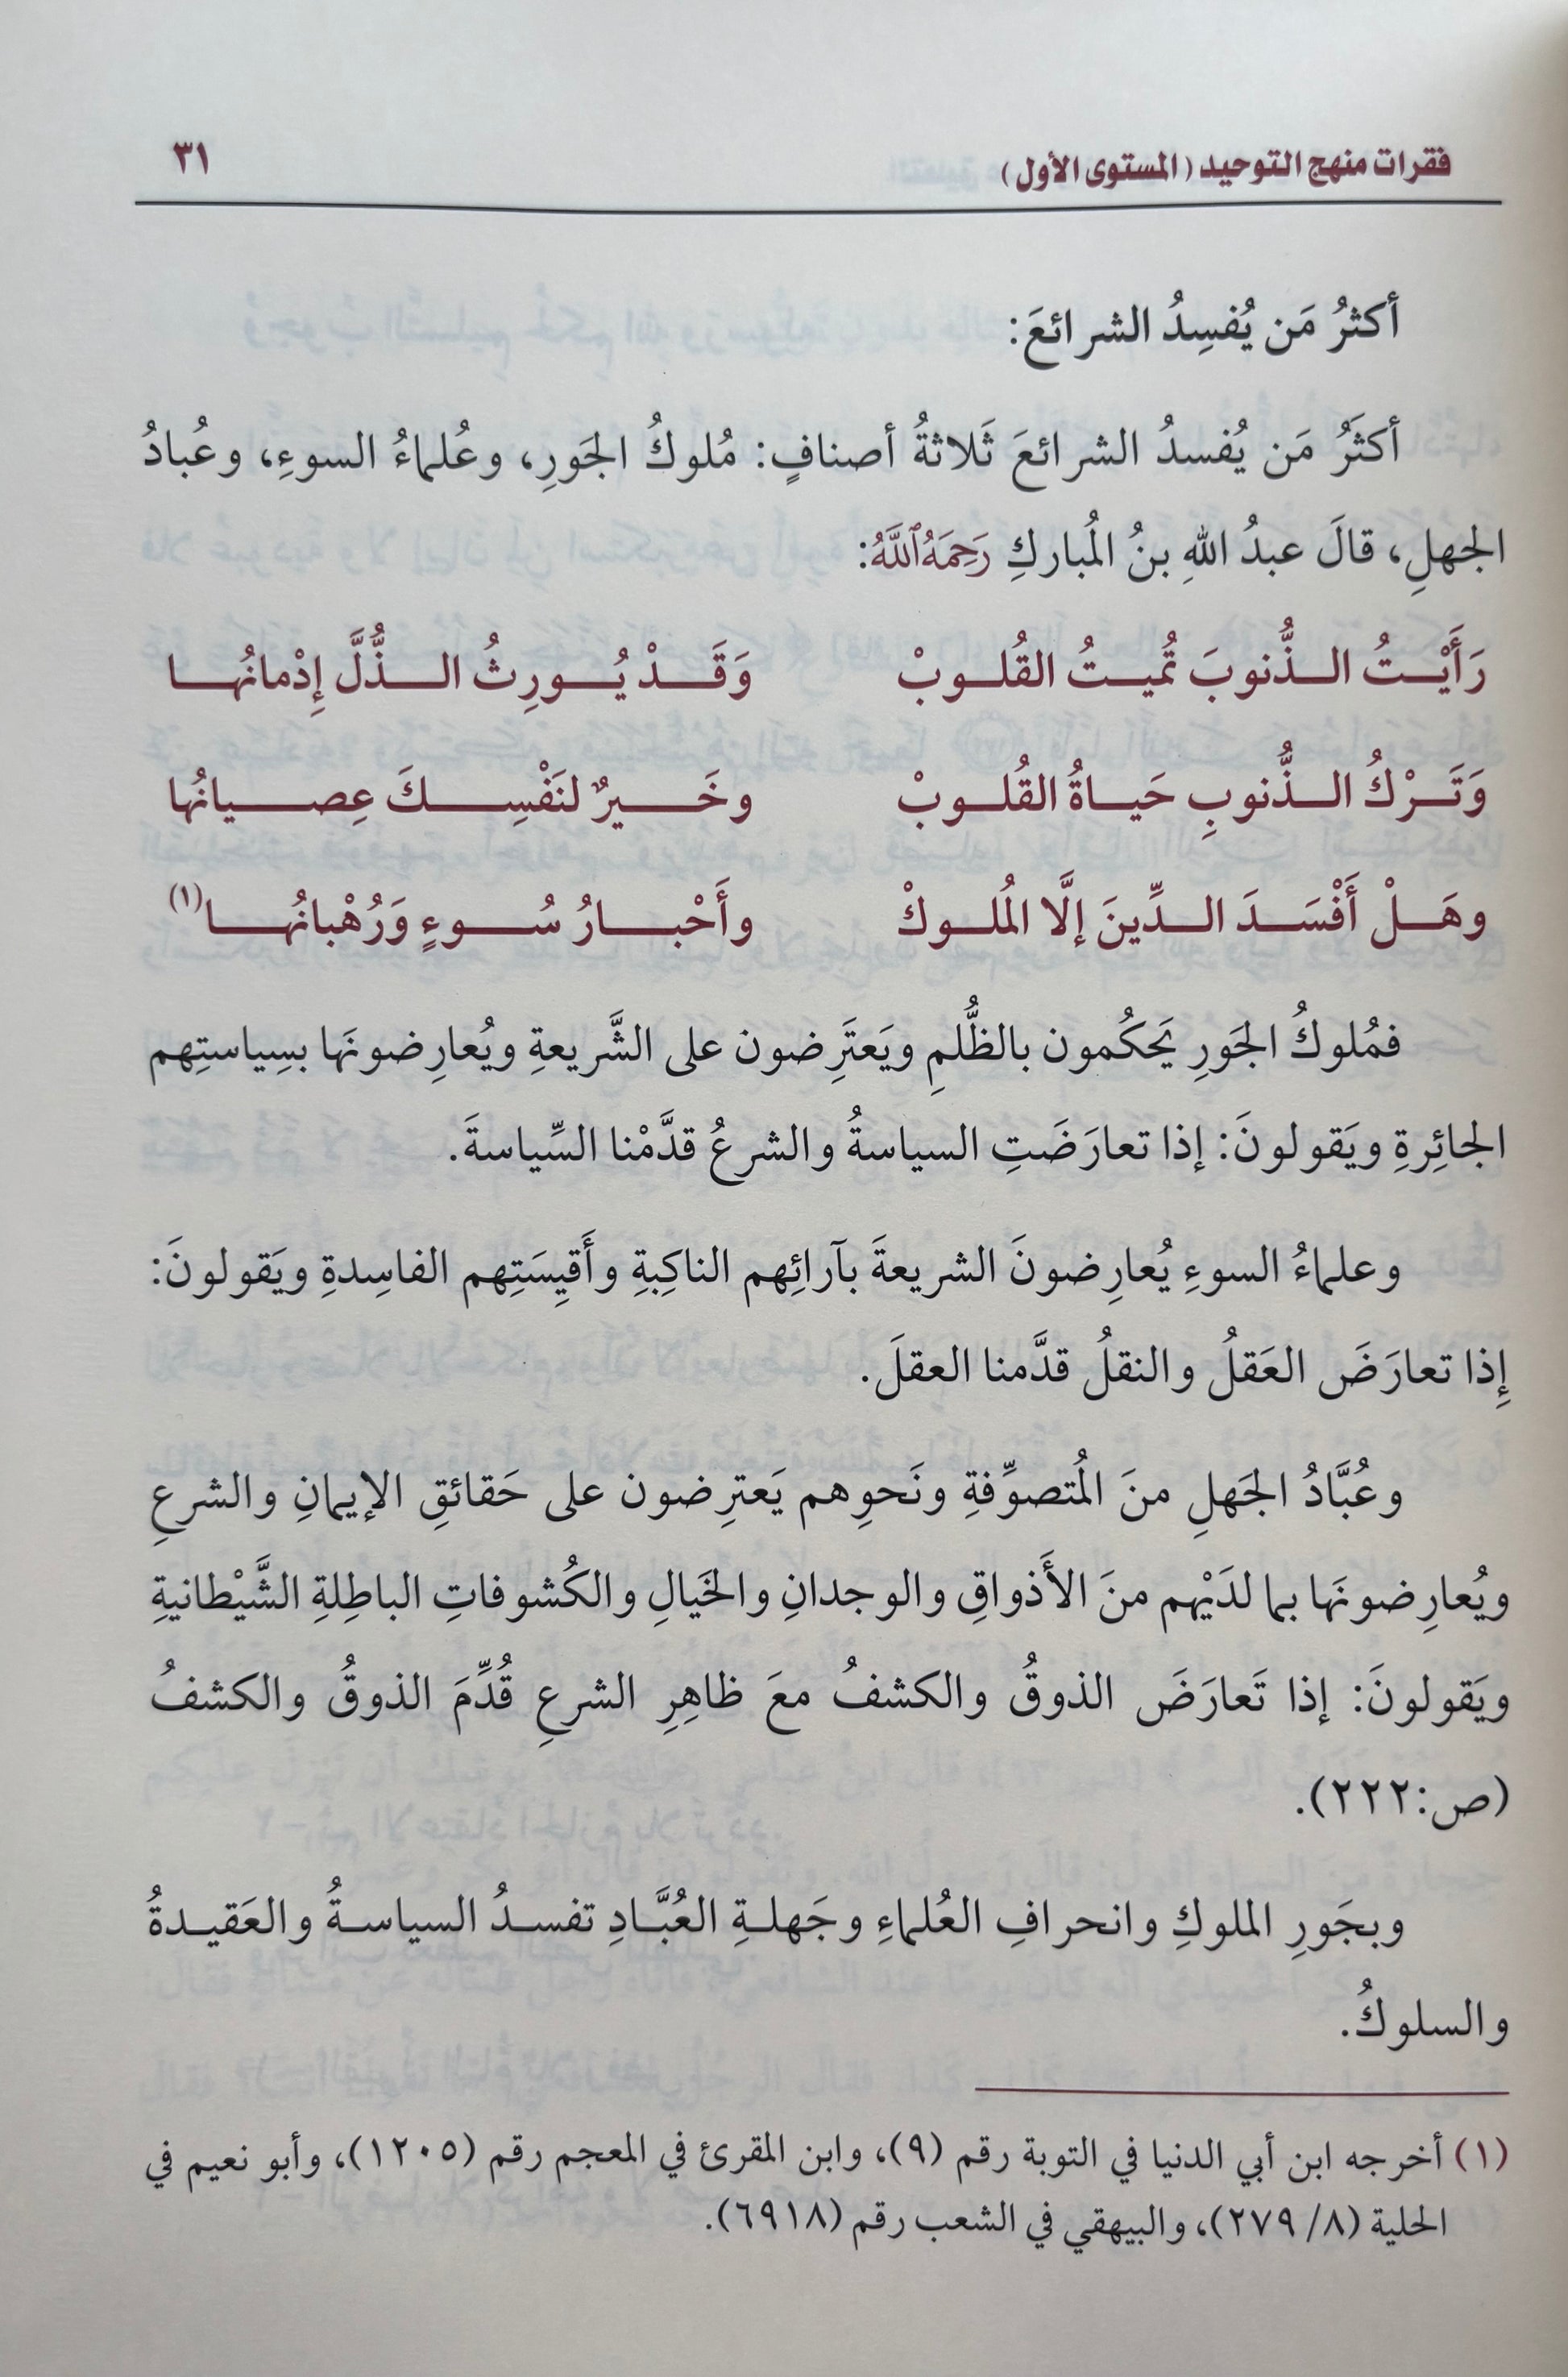 فقرات منهج التوحيد (المستوى الأول) ٣١
أكثرُ مَن يُفسِدُ الشرائعَ:
أكثَرُ مَن يُفسدُ الشرائعَ ثَلاثةُ أصنافٍ: مُلوكُ الجَورِ، وعُلماءُ السوءِ، وعُبادُ
الجهلِ، قالَ عبدُ اللهِ بنُ المُباركِ رَحِمَهُ ٱللَّهُ:
رَأَيْتُ الذُّنوبَ تُميتُ القُلوبْ وَقَدْ يُورِثُ الذُّلَّ إِدْمانُها
وَتَرْكُ الذُّنوبِ حَياةُ القُلوبْ وخَيرٌ لنَفْسِكَ عِصيانُها
وهَلْ أَفْسَدَ الدِّينَ إلَّا المُلوكْ وأَحْبارُ سُوءٍ وَرُهْبانُها(١)
فمُلوكُ الجَورِ يَحكُمون بالظُّلمِ ويَعتَرِضون على الشَّريعةِ ويُعارِضونَها بسِياستِهم
الجائِرةِ ويَقولونَ: إذا تعارَضَتِ السياسةُ والشرعُ قدَّمْنا السِّياسةَ.
وعلماءُ السوءِ يُعارِضونَ الشريعةَ بآرائِهم الناكِبةِ وأَقيِسَتِهم الفاسِدةِ ويَقولونَ:
إِذا تعارَضَ العَقلُ والنقلُ قدَّمنا العقلَ.
وعُبَّادُ الجَهلِ منَ المُتصوِّفةِ ونَحوِهم يَعترِضون على حَقائقِ الإيمانِ والشرعِ
ويُعارِضونَها بما لدَيْهم منَ الأَذواقِ والوجدانِ والخَيالِ والكُشوفاتِ الباطِلةِ الشَّيْطانيةِ
ويَقولونَ: إذا تَعارَضَ الذوقُ والكشفُ معَ ظاهِرِ الشرعِ قُدِّمَ الذوقُ والكشفُ
(ص:٢٢٢).
وبجَورِ الملوكِ وانحرافِ العُلماءِ وجَهلةِ العُبَّادِ تفسدُ السياسةُ والعَقيدةُ
والسلوكُ.
(١) أخرجه ابن أبي الدنيا في التوبة رقم (٩)، وابن المقرئ في المعجم رقم (١٢٠٥)، وأبو نعيم في
الحلية (٨/ ٢٧٩)، والبيهقي في الشعب رقم (٦٩١٨).